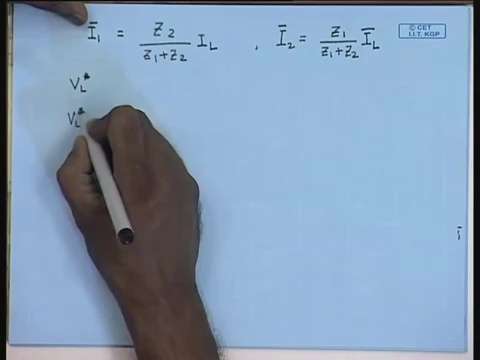 Ī₁ = Z₂ / (Z₁+Z₂) I_L , Ī₂ = Z₁ / (Z₁+Z₂) Ī_L
© CET
I.I.T. KGP
V_L*
V_L*